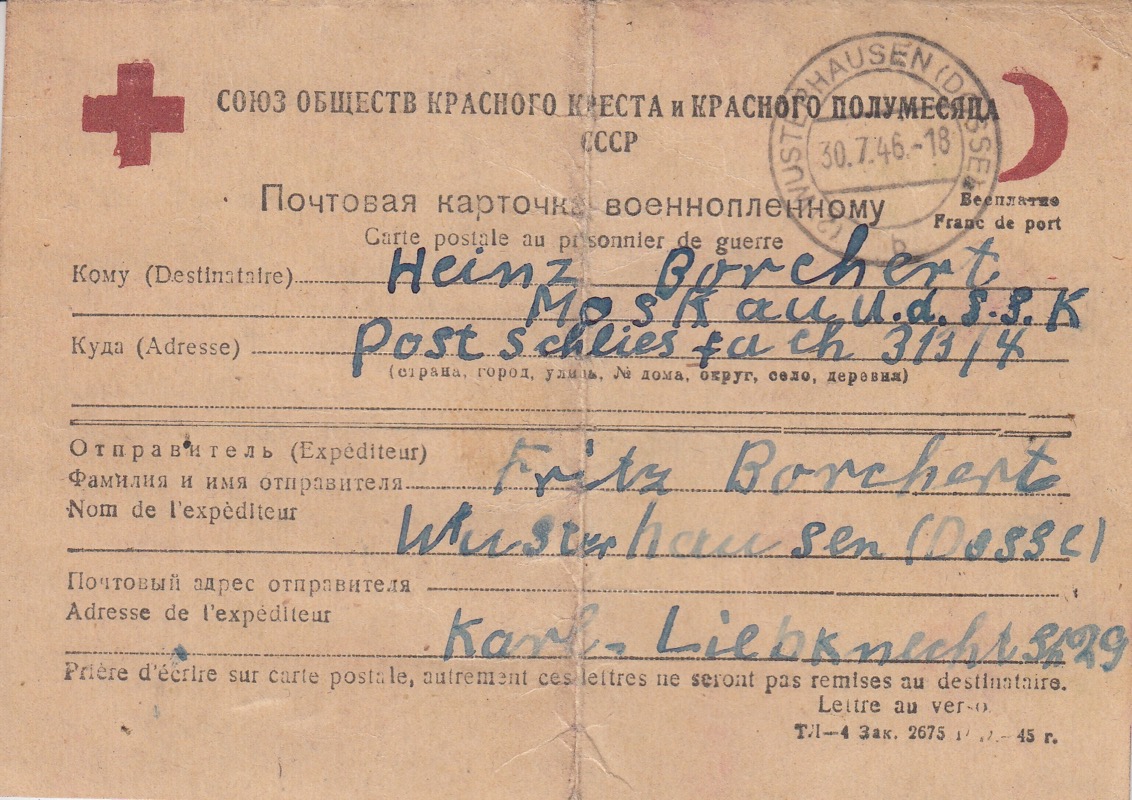 СОЮЗ ОБЩЕСТВ КРАСНОГО КРЕСТА и КРАСНОГО ПОЛУМЕСЯЦА
СССР
WUSTERHAUSEN (DOSSE)
30.7.46.-18
(2) b
Почтовая карточка военнопленному
Бесплатно
Franc de port
Carte postale au prisonnier de guerre
Кому (Destinataire) Heinz Borchert
Moskau U.d.S.S.R
Куда (Adresse) Postschliesfach 313/4
(страна, город, улица, № дома, округ, село, деревня)
Отправитель (Expéditeur)
Фамилия и имя отправителя Fritz Borchert
Nom de l'expèditeur
Wusterhausen (Dosse)
Почтовый адрес отправителя
Adresse de l'expéditeur
Karl-Liebknecht Str 29
Prière d'écrire sur carte postale, autrement ces lettres ne seront pas remises au destinataire.
Lettre au verso.
ТЛ—4 Зак. 2675 45 г.